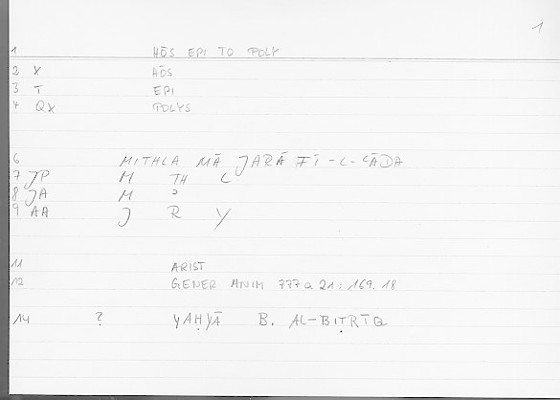 1
1 HŌS EPI TO POLY
2 X HŌS
3 T EPI
4 QX POLYS
6 MITHLA MĀ JARĀ FĪ-L-ʿĀDA
7 JP M TH L
8 JA M ʾ
9 AA J R Y
11 ARIST
12 GENER ANIM 777a21: 169.18
14 ? YAḤYĀ B. AL-BIṬRĪQ